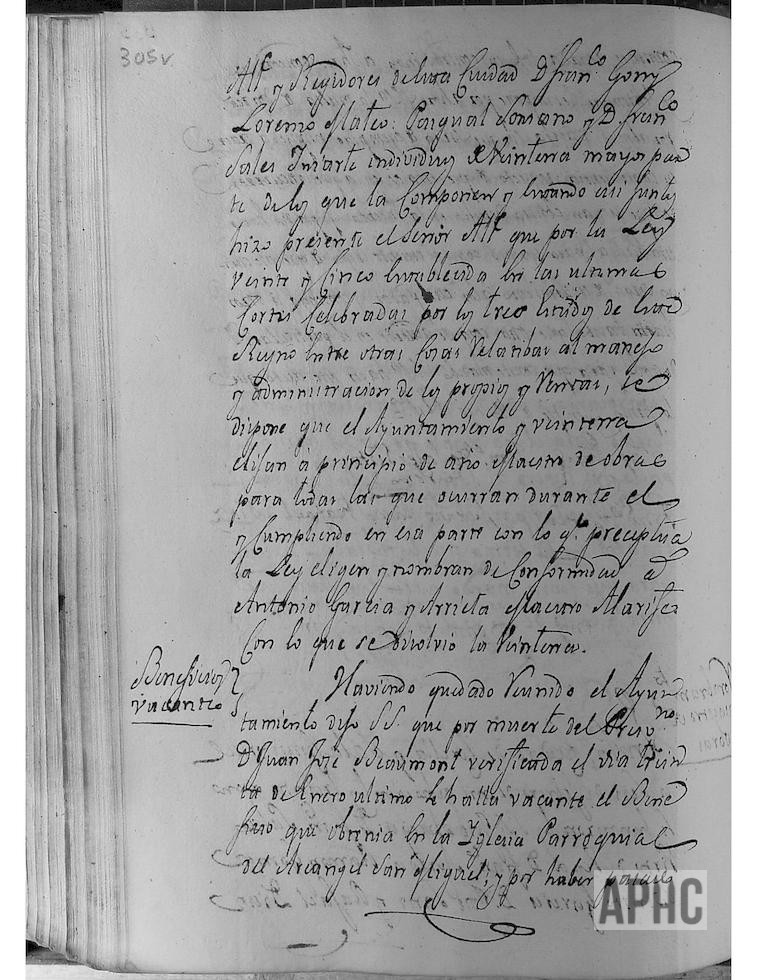 305v
Alc.e y Regidores de esta Ciudad D. Fran.co Gomez
Lorenzo Mateo: Pasqual Soriano y D. Fran.co
Sales Iriarte individuos de Veintena mayor par
te de los que la Componen y estando asi juntos
hizo presente el Señor Alc.e que por la Ley
veinte y Cinco establecida en las ultimas
Cortes Celebradas por los tres Estados de este
Reyno entre otras Cosas relatibas al manejo
y administracion de los propios y Rentas, se
dispone que el Ayuntamiento y veintena
elijan à principio de año Maestro de obras
para todas las que ocurran durante el
y Cumpliendo en esa parte con lo q.e preceptua
la Ley eligen y nombran de Conformidad à
Antonio Garcia y Arrieta Maestro Alarife
Con lo que se disolvio la Veintena.
Beneficios
vacantes
Haviendo quedado reunido el Ayun
tamiento dijo SS. que por muerte del Presv.no
D. Juan José Beaumont verificada el dia trein
ta de Enero ultimo se halla vacante el Bene
ficio que obtenia en la Iglesia Parroquial
del Arcangel San Miguel; y por haber pasado
APHC